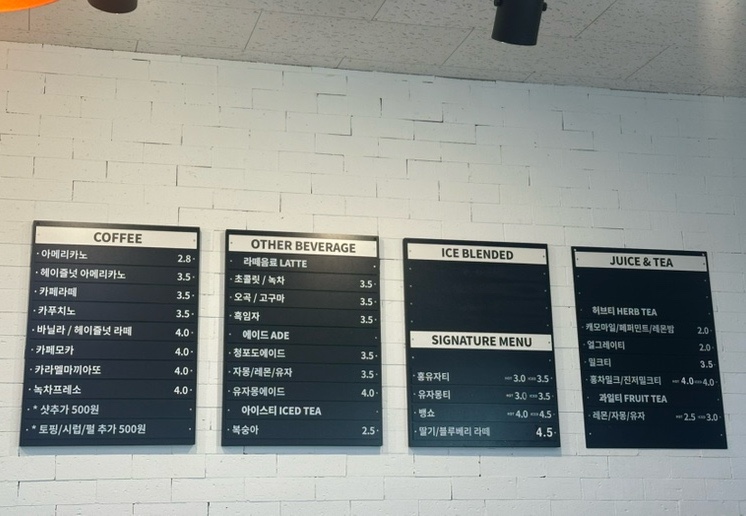 COFFEE
· 아메리카노 2.8 ·
· 헤이즐넛 아메리카노 3.5 ·
· 카페라떼 3.5 ·
· 카푸치노 3.5 ·
· 바닐라 / 헤이즐넛 라떼 4.0 ·
· 카페모카 4.0 ·
· 카라멜마끼아또 4.0 ·
· 녹차프레소 4.0 ·
· * 샷추가 500원
· * 토핑/시럽/펄 추가 500원
OTHER BEVERAGE
라떼음료 LATTE
초콜릿 / 녹차 3.5
오곡 / 고구마 3.5
흑임자 3.5
에이드 ADE
청포도에이드 3.5
자몽/레몬/유자 3.5
유자몽에이드 4.0
아이스티 ICED TEA
복숭아 2.5
ICE BLENDED
SIGNATURE MENU
홍유자티 3.0 3.5
유자몽티 3.0 3.5
뱅쇼 4.0 4.5
딸기/블루베리 라떼 4.5
JUICE & TEA
허브티 HERB TEA
캐모마일/페퍼민트/레몬밤 2.0
얼그레이티 2.0
밀크티 3.5
홍차밀크/진저밀크티 4.0 4.0
과일티 FRUIT TEA
레몬/자몽/유자 2.5 3.0